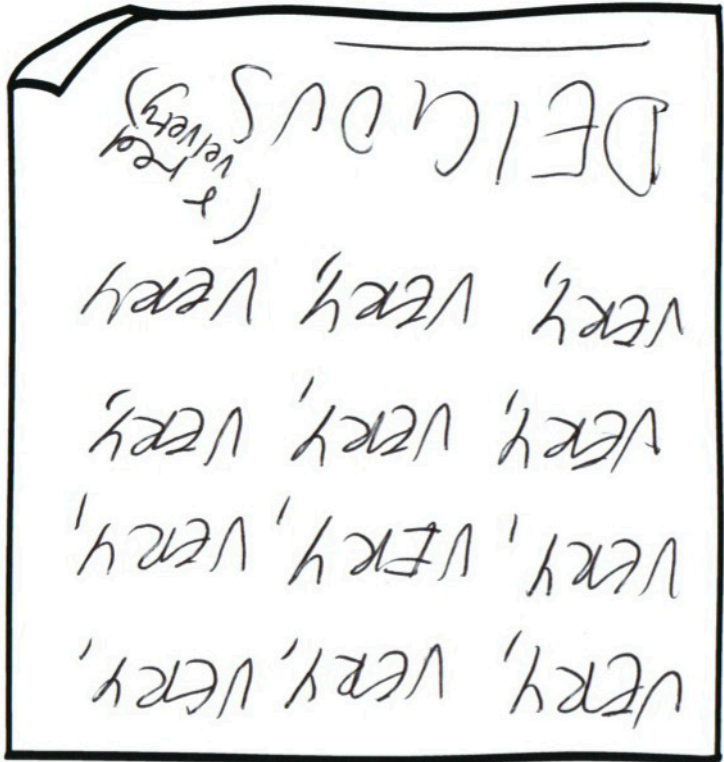 VERY, VERY, VERY,
VERY, VERY, VERY,
VERY, VERY, VERY,
VERY, VERY, VERY
DEICIOUS (+ red
velvety)